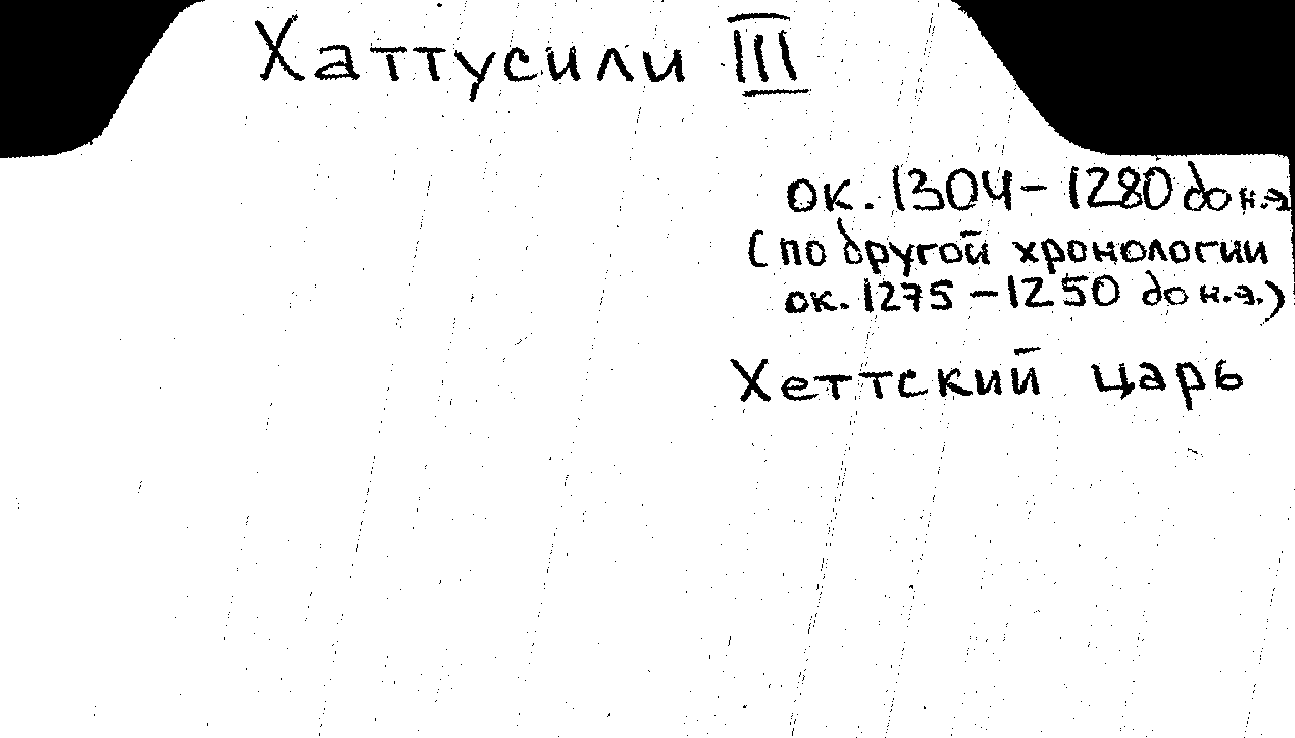 Хаттусили III
ок. 1304 - 1280 до н.э.
(по другой хронологии
ок. 1275 - 1250 до н.э.)
Хеттский царь